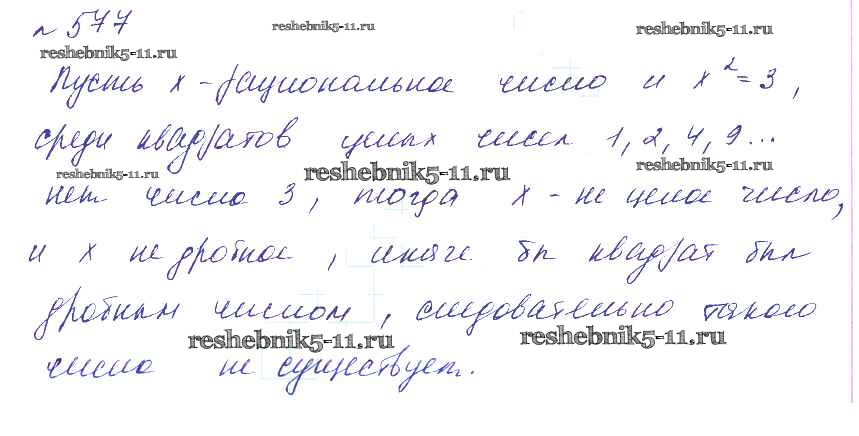 № 577
reshebnik5-11.ru
reshebnik5-11.ru
reshebnik5-11.ru
Пусть x - рациональное число и x² = 3,
среди квадратов целых чисел 1, 2, 4, 9...
reshebnik5-11.ru
reshebnik5-11.ru
reshebnik5-11.ru
нет число 3, тогда x - не целое число,
и x не дробное, иначе бы квадрат был
дробным числом, следовательно такого
reshebnik5-11.ru
reshebnik5-11.ru
числа не существует.